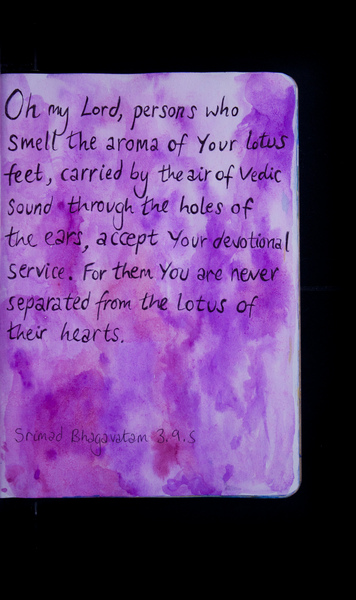 Oh my Lord, persons who
smell the aroma of Your lotus
feet, carried by the air of Vedic
sound through the holes of
the ears, accept Your devotional
service. For them You are never
separated from the lotus of
their hearts.
Srimad Bhagavatam 3.9.5